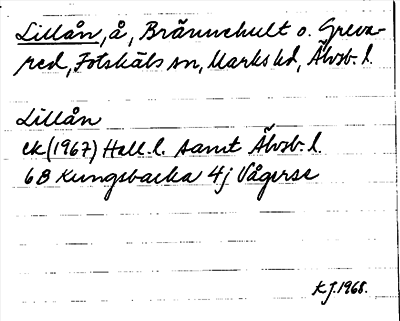 Lillån, å, Brännhult o. Greva-
red, Fotskäls sn, Marks hd, Älvsb. l.
Lillån
ek (1967) Hall. l. samt Älvsb. l.
6B Kungsbacka 4j Vågerse
KJ. 1968.